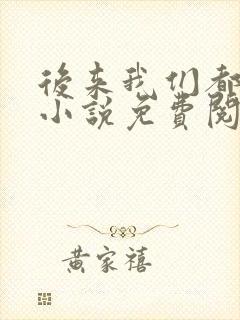 後来我们都
小说免費閱
黄家禧